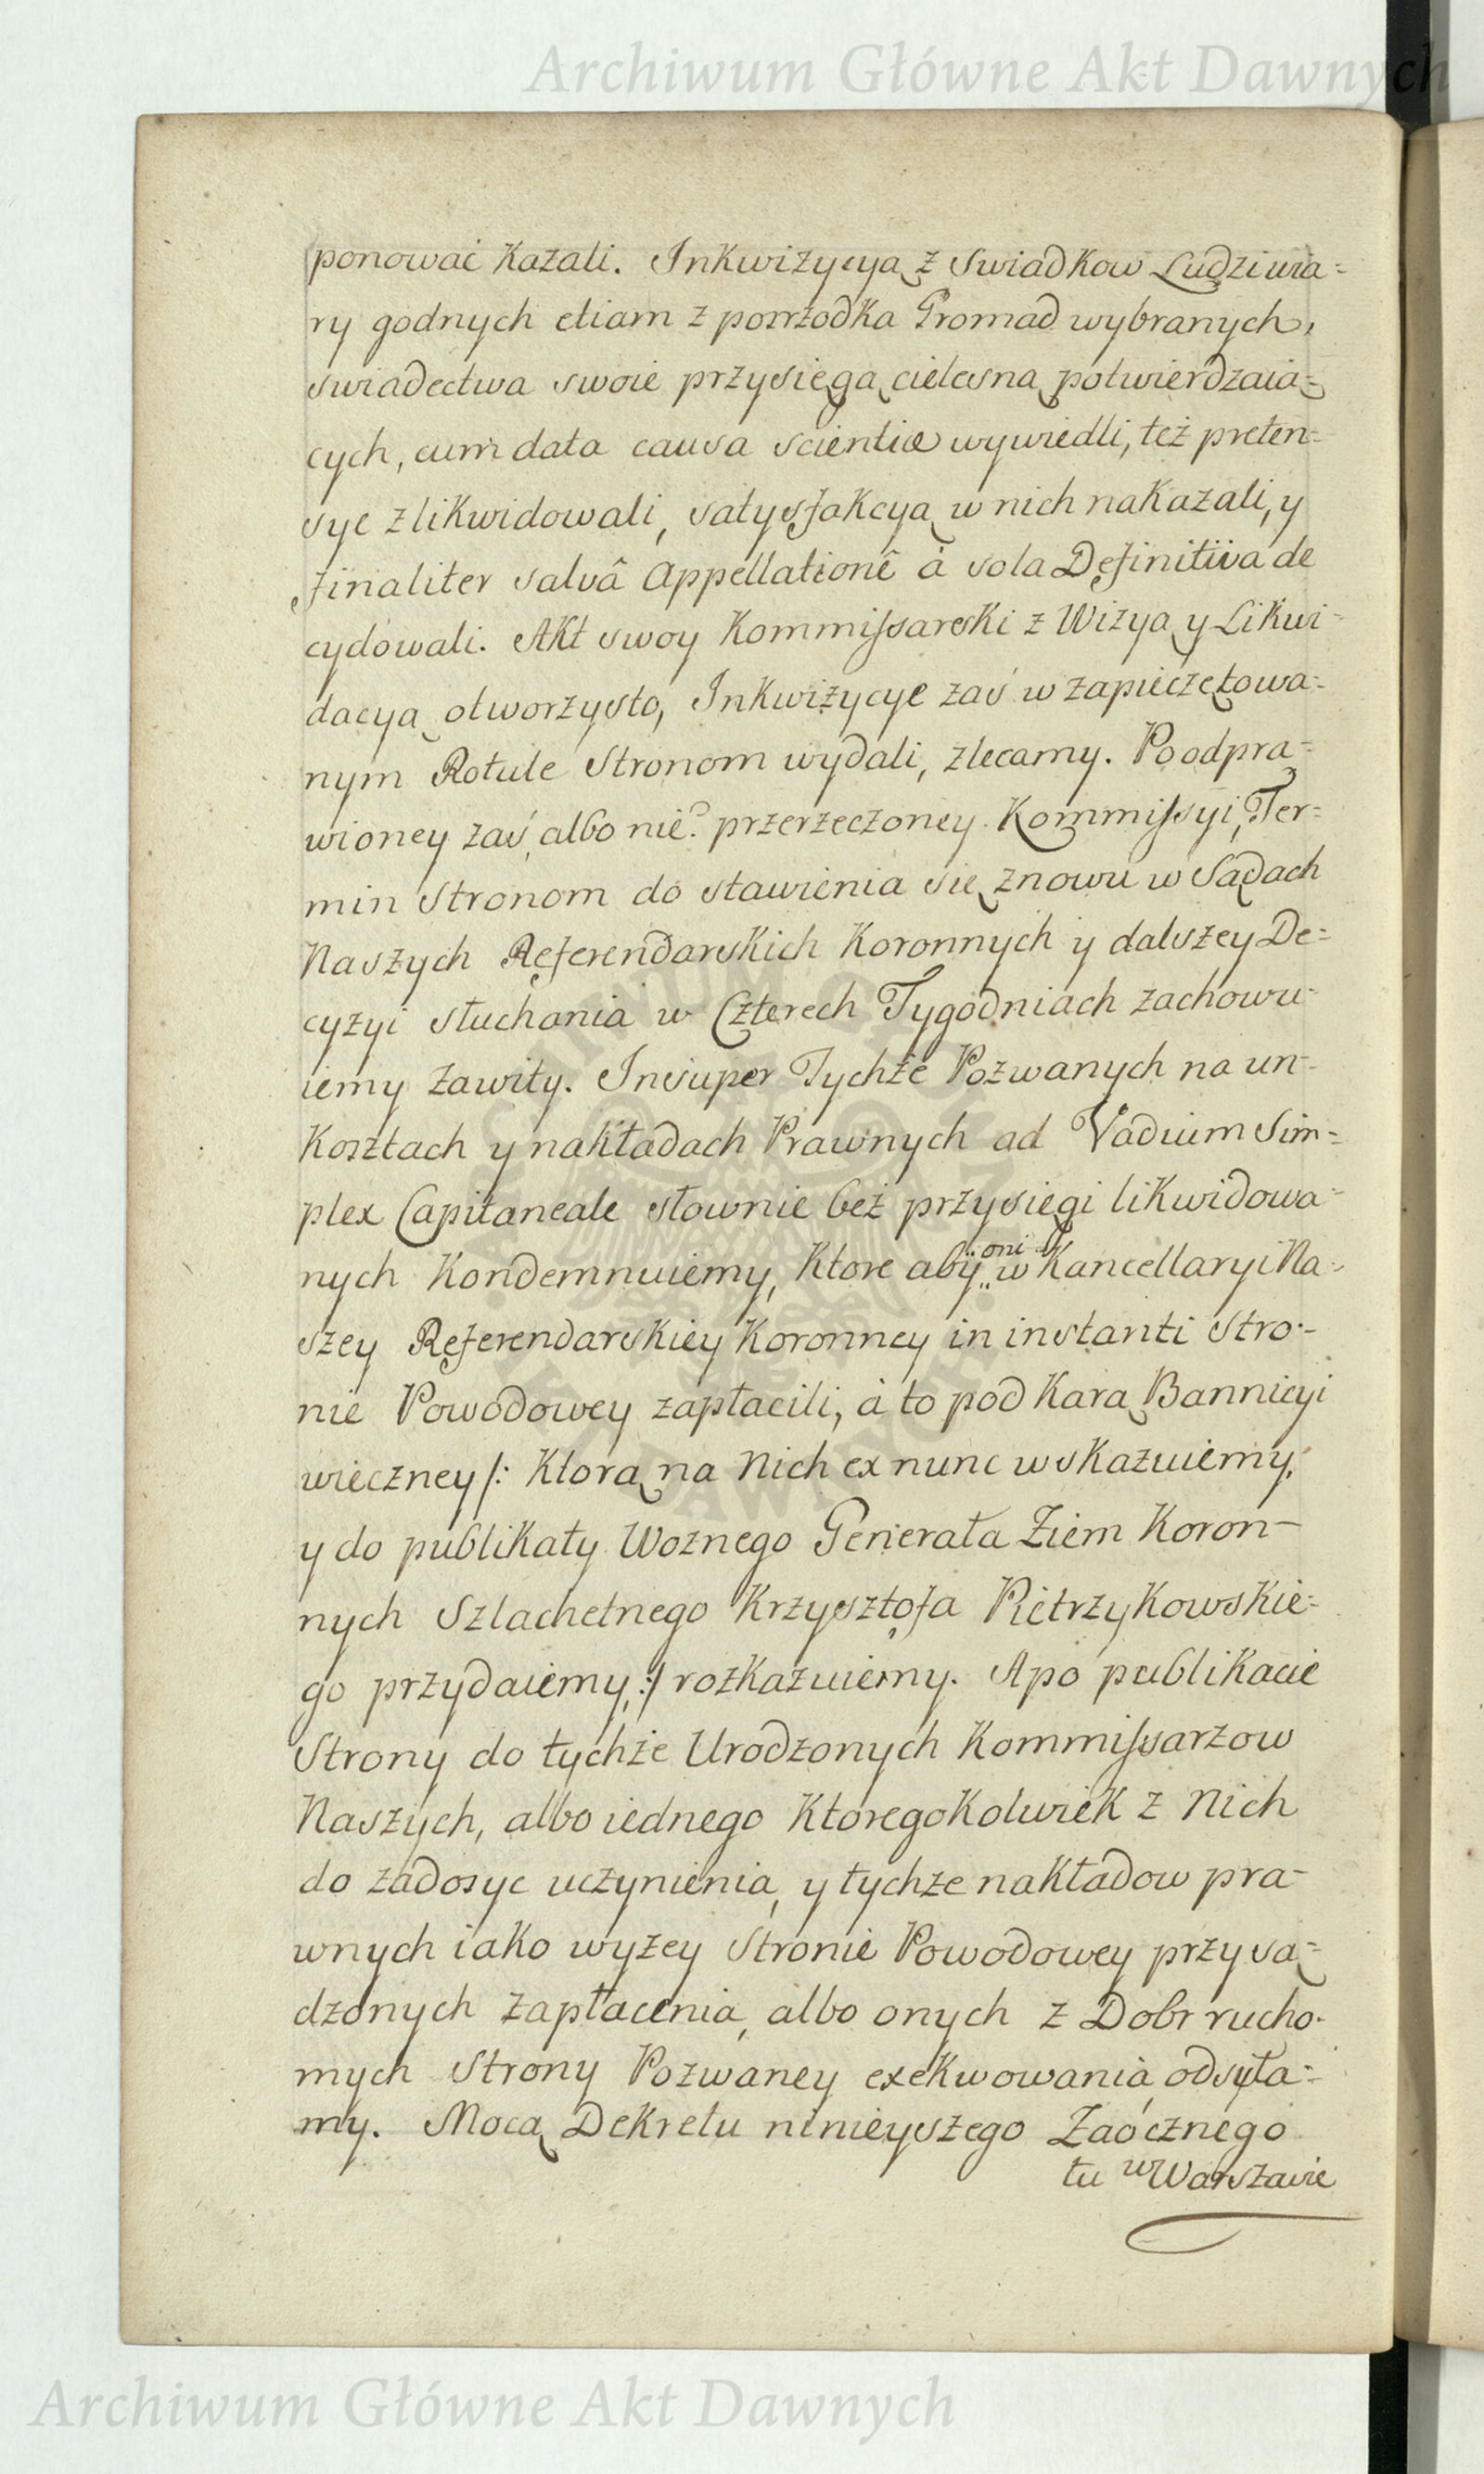 Archiwum Główne Akt Dawnych
ponować kazali. Inkwizycyą z Swiadkow Ludzi wia=
ry godnych etiam z posrzodka Gromad wybranych,
swiadectwa swoie przysięgą cielesną potwierdzaią=
cych, cum data causa scientiæ wywiedli, też preten=
sye zlikwidowali, satysfakcyą w nich nakazali, y
finaliter salvâ Appellationê à sola Definitiva de
cydowali. Akt swoy Kommissarski z Wizyą y Likwi=
dacyą otworzysto, Inkwizycye zaś w zapieczętowa=
nym Rotule Stronom wydali, zlecamy. Po odpra=
wioney zaś, albo nie? przerzeczoney Kommissyi, Ter=
min Stronom do stawienia się znowu w Sądach
Naszych Referendarskich Koronnych y dalszey De=
cyzyi słuchania w Czterech Tygodniach zachowu=
iemy zawity. Insuper Tychże Pozwanych na un=
kosztach y nakładach Prawnych ad Vadium Sim=
plex Capitaneale słownie bez przysięgi likwidowa=
nych Kondemnuiemy, ktore aby oni w Kancellaryi Na=
szey Referendarskiey Koronney in instanti Stro=
nie Powodowey zapłacili, à to pod karą Bannicyi
wieczney /: ktorą na Nich ex nunc wskazuiemy,
y do publikaty Woznego Generała Ziem Koron=
nych Szlachetnego Krzysztofa Pietrzykowskie=
go przydaiemy, :/ rozkazuiemy. A po publikacie
Strony do tychże Urodzonych Kommissarzow
Naszych, albo iednego ktoregokolwiek z Nich
do zadosyc uczynienia, y tychze nakładow pra=
wnych iako wyżey Stronie Powodowey przysą=
dzonych zapłacenia, albo onych z Dobr rucho=
mych Strony Pozwaney exekwowania odsyła=
my. Mocą Dekretu ninieyszego Zaocznego
tu w Warszawie
Archiwum Główne Akt Dawnych